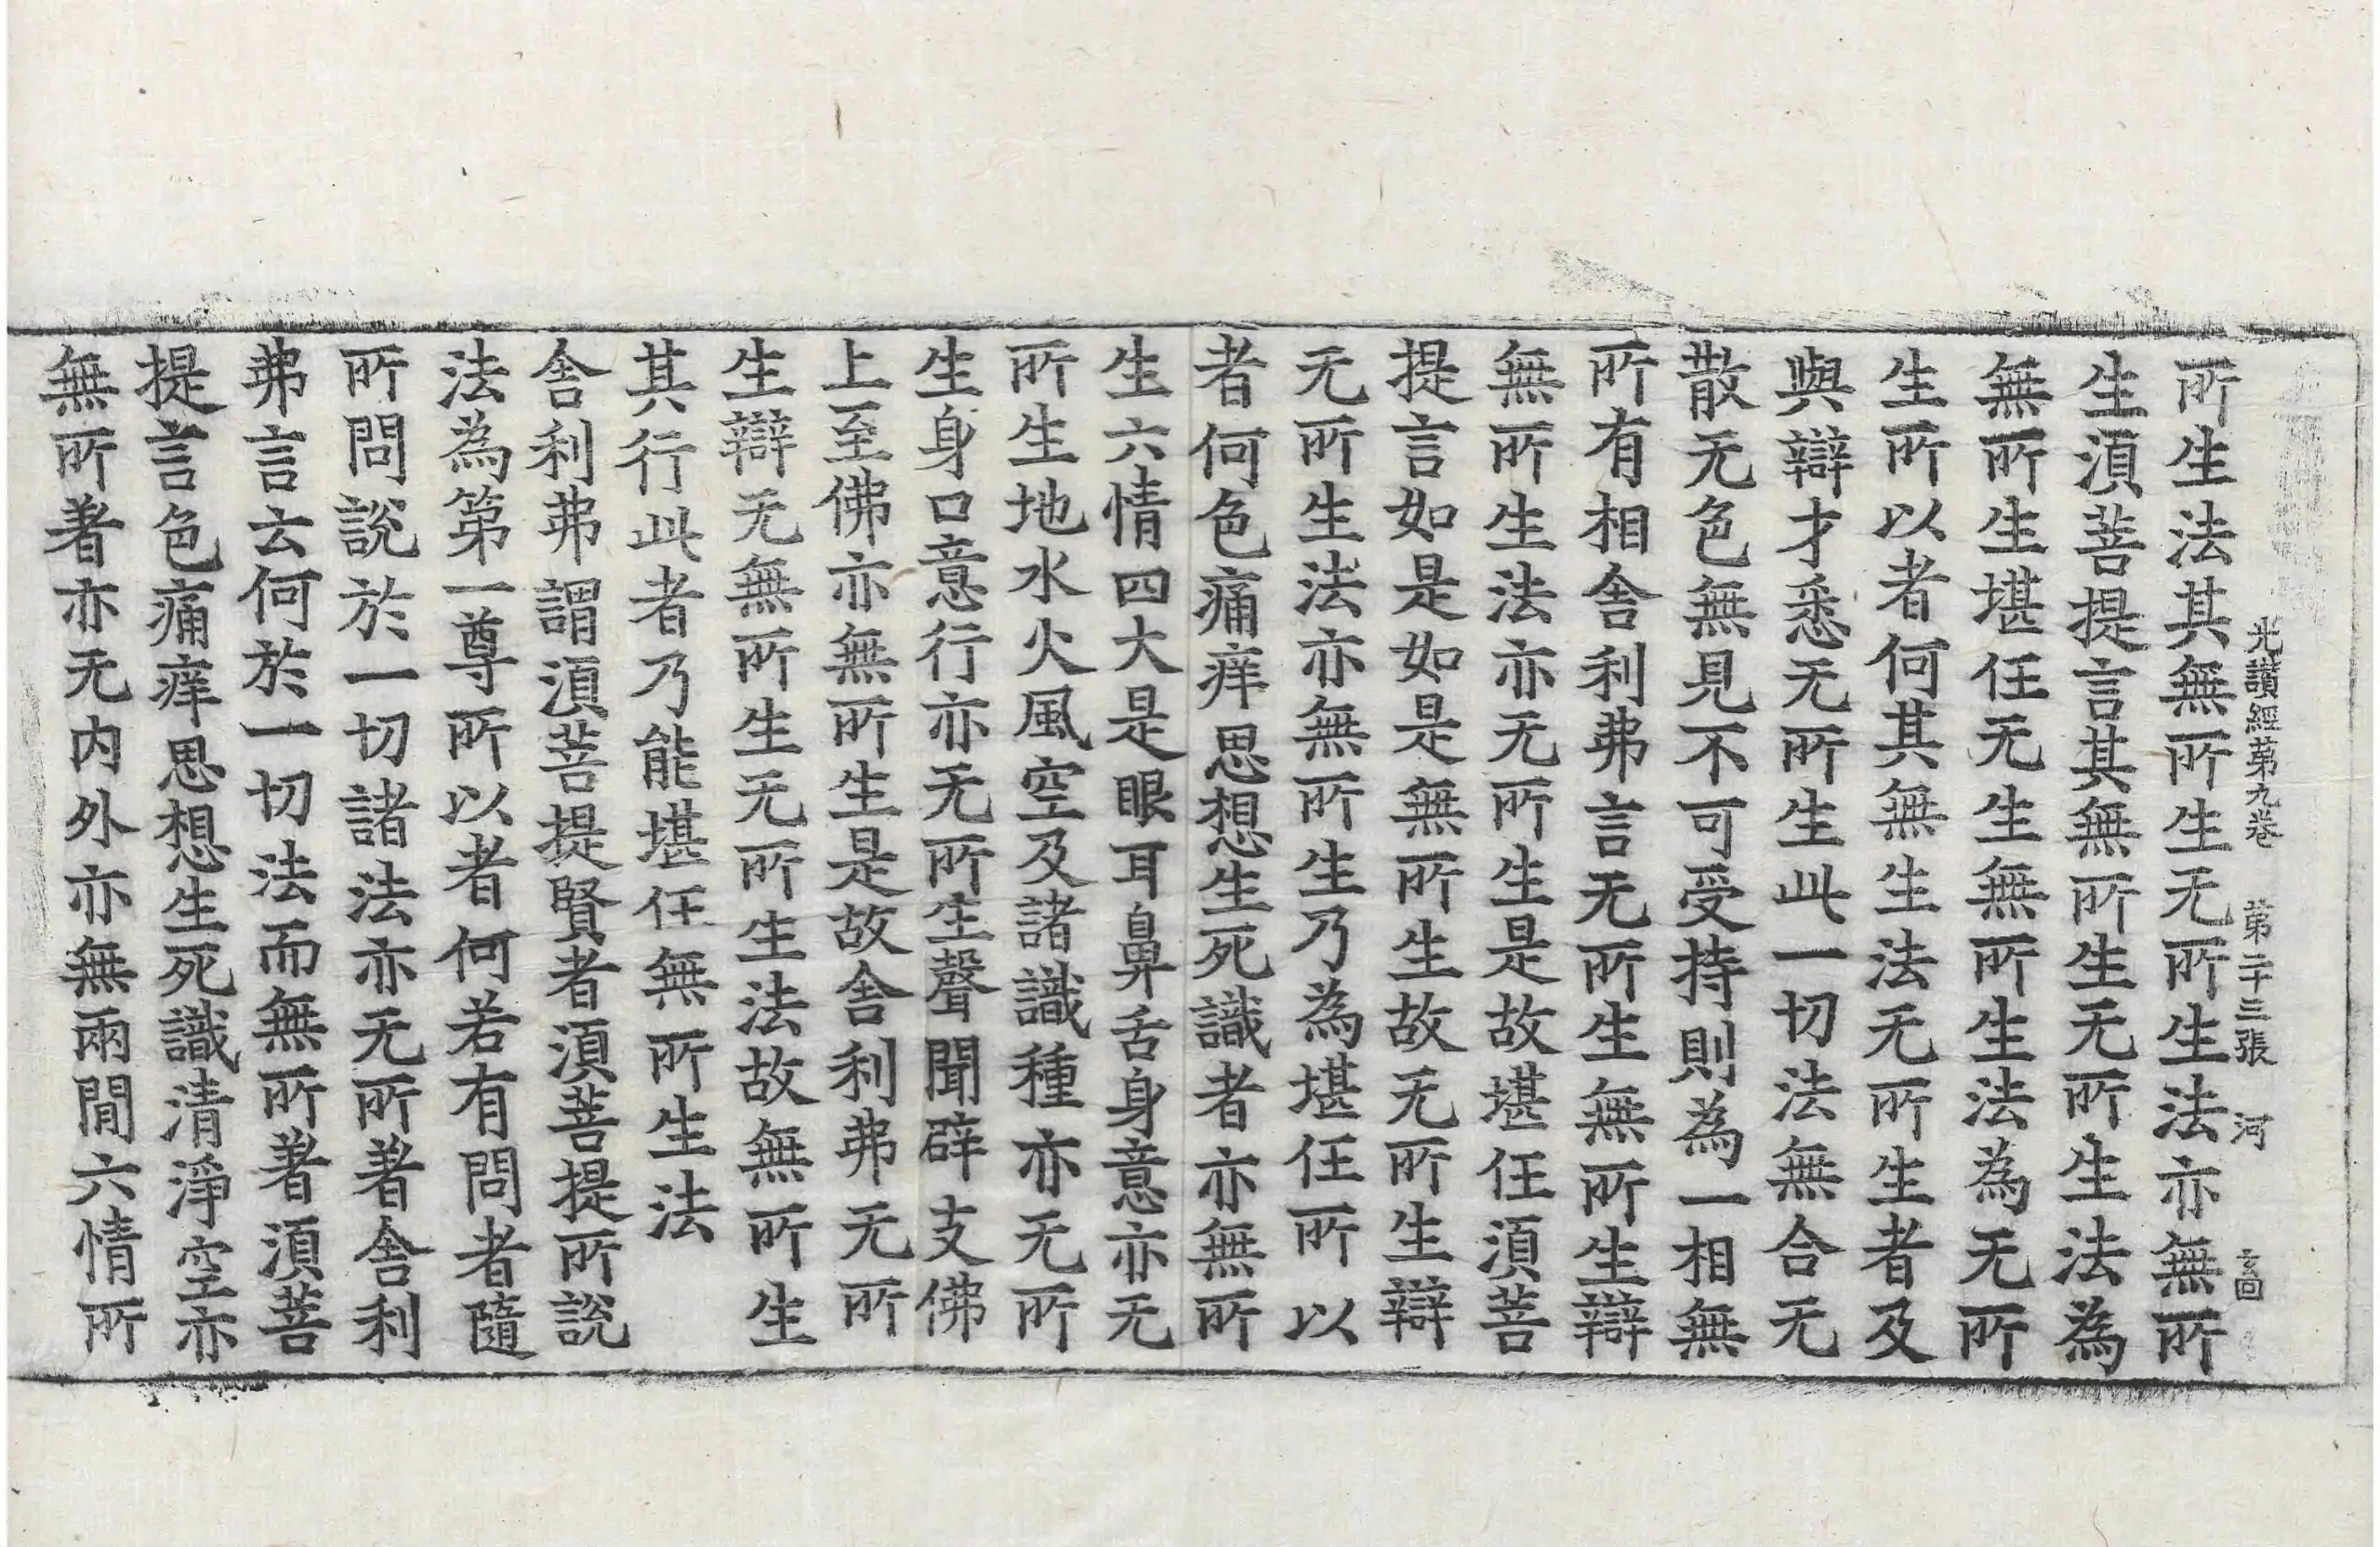 光讚經第九卷　第二十三張　河　玄回
所生法其無所生无所生法亦無所
生湏菩提言其無所生无所生法為
無所生堪任无生無所生法為无所
生所以者何其無生法无所生者及
與辯才悉无所生此一切法無合无
散无色無見不可受持則為一相無
所有相舎利弗言无所生無所生辯
無所生法亦无所生是故堪任湏菩
提言如是如是無所生故无所生辯
无所生法亦無所生乃為堪任所以
者何色痛痒思想生死識者亦無所
生六情四大是眼耳鼻舌身意亦无
所生地水火風空及諸識種亦无所
生身口意行亦无所生聲聞辟支佛
上至佛亦無所生是故舎利弗无所
生辯无無所生无所生法故無所生
其行此者乃能堪任無所生法
舎利弗謂湏菩提賢者湏菩提所說
法為第一尊所以者何若有問者隨
所問說於一切諸法亦无所著舎利
弗言云何於一切法而無所著湏菩
提言色痛痒思想生死識清淨空亦
無所著亦无内外亦無兩間六情所